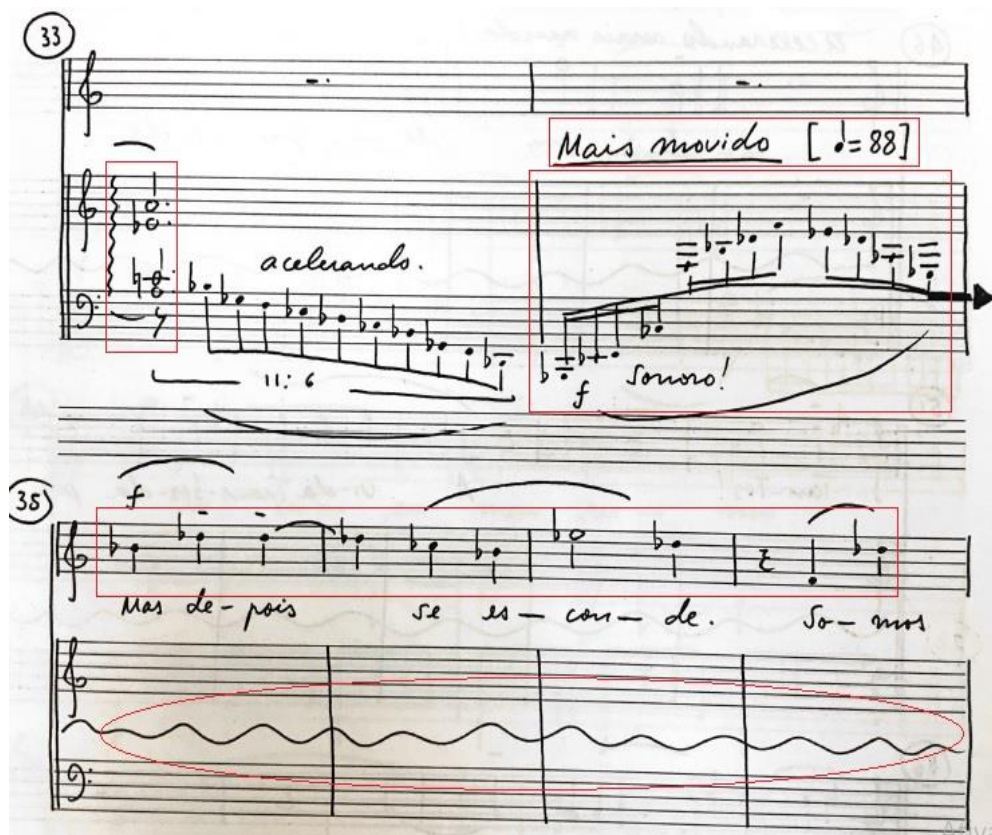 33
Mais movido [♩= 88]
acelerando.
11:6
f Sonoro!
35
f
Mas de-pois se es-con-de. So-mos